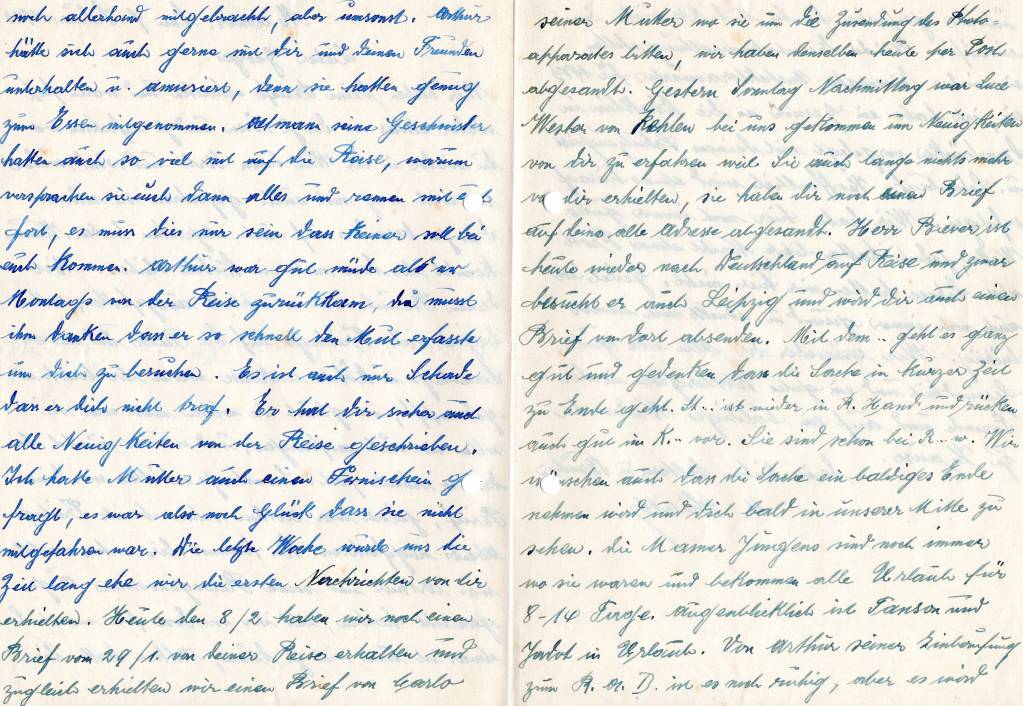 noch allerhand mitgebracht, aber umsonst. Arthur
hätte sich auch gerne mit dir und deinen Freunden
unterhalten u. amusiert, denn sie hatten genug
zum Essen mitgenommen. Altmann seine Geschwister
hatten auch so viel mit auf die Reise, warum
versprachen sie euch dann alles und rannen mit euch
fort, es muss dies nur sein dass keiner soll bei
euch kommen. Arthur war gut müde als er
Montags von der Reise zurückkam, du musst
ihm danken dass er so schnell den Mut erfasste
um dich zu besuchen. Es ist auch nur Schade
dass er dich nicht traf. Er hat dir sicher auch
alle Neuigkeiten von der Reise geschrieben.
Ich hatte Mutter auch einen ge
fragt, es war also noch Glück dass sie nicht
mitgefahren war. Die letzte Woche wurde uns die
Zeit lang ehe wir die ersten Nachrichten von dir
erhielten. Heute den 8/2 haben wir noch einen
Brief vom 29/1. von deiner Reise erhalten und
zugleich erhielten wir einen Brief von Carlo
seiner Mutter wo sie um die Zusendung des Photo-
apparates bitten, wir haben denselben heute per Post
abgesandt. Gestern Sonntag Nachmittag war Luce
Wester von Kehlen bei uns gekommen um Neuigkeiten
von dir zu erfahren weil Sie auch lange nichts mehr
von dir erhielten, sie haben dir noch einen Brief
auf deine alte Adresse abgesandt. Herr Biever ist
heute wieder nach Deutschland auf Reise und zwar
besucht er auch Leipzig und wird dir auch einen
Brief von dort absenden. Mit dem .. geht es ganz
gut und gedenken dass die Sache in kurzer Zeit
zu Ende geht. St.. ist wieder in R. Hand und rücken
auch gut im K.. vor. Sie sind schon bei R.. w. Wir
wünschen auch dass die Sache ein baldiges Ende
nehmen wird und dich bald in unserer Mitte zu
sehen. Die Mamer Jungens sind noch immer
wo sie waren und bekommen alle Urlaub für
8-14 Tage. Augenblicklich ist Tanson und
Jadot in Urlaub. Von Arthur seiner Einberufung
zum R. A. D. ist es noch ruhig, aber es wird